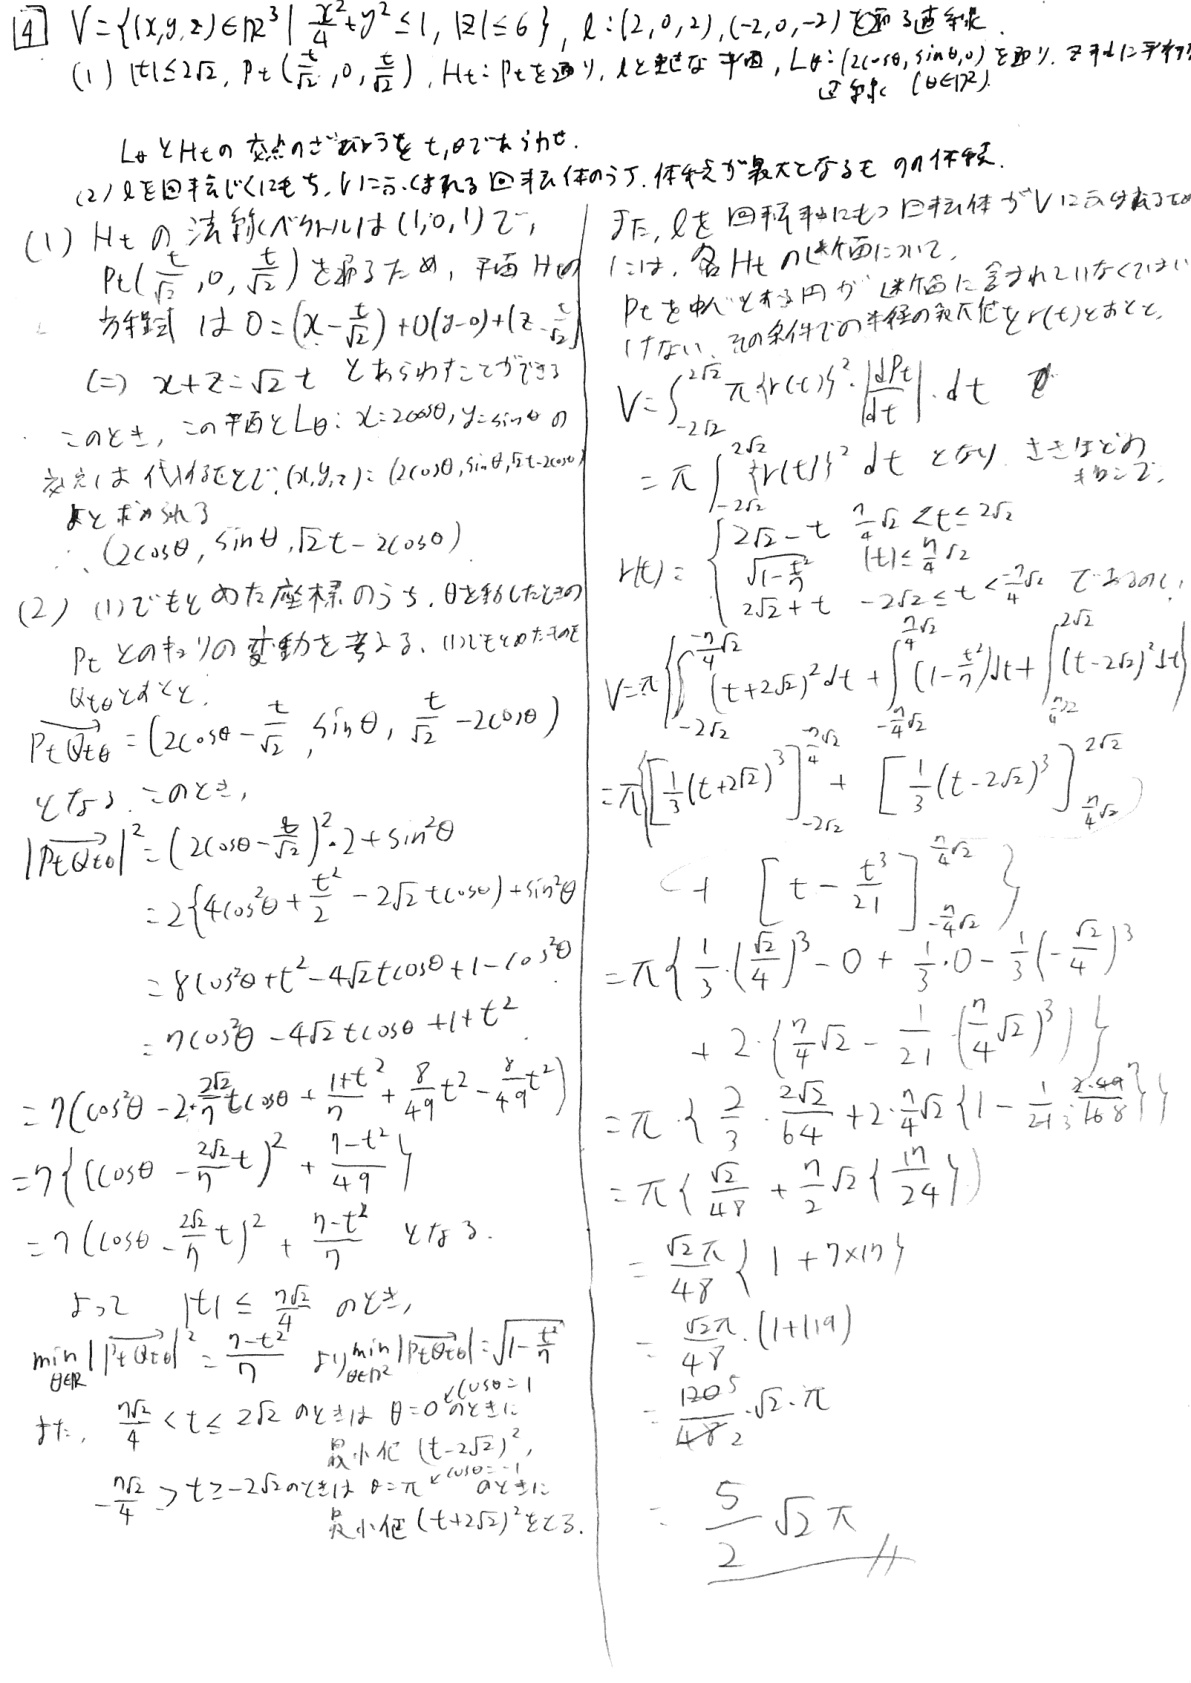 4 V={(x,y,z)∈R³| x²/4+y²≤1, |z|≤6}, l:(2,0,2),(-2,0,-2)を通る直線.
(1) |t|≤2√2, Pt(t/√2, 0, t/√2), Ht: Ptを通り, lと垂直な平面, Lθ:(2cosθ, sinθ, 0)を通り. z軸に平行な
直線 (θ∈R).
LθとHtの交点のざひょうをt,θであらわせ.
(2) lを回転じくにもち, Vにふくまれる回転体のうち. 体積が最大となるものの体積.
(1) Htの法線ベクトルは(1,0,1)で,
Pt(t/√2, 0, t/√2)を通るため, 平面Htの
方程式は 0=(x-t/√2)+0(y-0)+(z-t/√2)
⇔ x+z=√2t とあらわすことができる
このとき, この平面とLθ: x=2cosθ, y=sinθの
交点は代入することで, (x,y,z)=(2cosθ, sinθ, √2t-2cosθ)
よと求められる
∴ (2cosθ, sinθ, √2t-2cosθ)
(2) (1)でもとめた座標のうち, θを動かしたときの
Ptとのキョリの変動を考える, (1)でもとめたものを
Qtθとおくと,
PtQtθ=(2cosθ-t/√2, sinθ, t/√2-2cosθ)
となる. このとき,
|PtQtθ|²=(2cosθ-t/√2)²・2+sin²θ
=2{4cos²θ+t²/2-2√2tcosθ}+sin²θ
=8cos²θ+t²-4√2tcosθ+1-cos²θ
=7cos²θ-4√2tcosθ+1+t²
=7(cos²θ-2・2√2/7 tcosθ+(1+t²)/7+8/49 t²-8/49 t²)
=7{(cosθ-2√2/7 t)²+(7-t²)/49}
=7(cosθ-2√2/7 t)²+(7-t²)/7 となる.
よって |t|≤7√2/4 のとき,
min θ∈R |PtQtθ|²=(7-t²)/7 より min θ∈R |PtQtθ|=√(1-t²/7)
また, 7√2/4<t≤2√2 のときは θ=0のときに
↙cosθ=1
最小化 (t-2√2)²,
-7√2/4>t≥-2√2のときは θ=π のときに
↙cosθ=-1
最小値 (t+2√2)²をとる.
また, lを回転軸にもつ回転体がVに含まれるため
には, 各Htの断面について,
Ptを中心とする円が断面に含まれていなくてはい
けない, その条件での半径の最大値をr(t)とおくと,
V=∫_{-2√2}^{2√2} π{r(t)}²・|dPt/dt|・dt
=π∫_{-2√2}^{2√2} {r(t)}² dt となり, さきほどの
r(t)={ 2√2-t 7/4√2<t≤2√2
√(1-t²/7) |t|≤7/4√2
2√2+t -2√2≤t<-7/4√2 であるので,
V=π{∫_{-2√2}^{-7/4√2}(t+2√2)²dt+∫_{-7/4√2}^{7/4√2}(1-t²/7)dt+∫_{7/4√2}^{2√2}(t-2√2)²dt}
=π{[1/3(t+2√2)³]_{-2√2}^{-7/4√2}+[1/3(t-2√2)³]_{7/4√2}^{2√2}
+[t-t³/21]_{-7/4√2}^{7/4√2}}
=π{1/3・(√2/4)³-0+1/3・0-1/3(-√2/4)³
+2・{7/4√2-1/21・(7/4√2)³}}
=π・{2/3・2√2/64+2・7/4√2{1-1/21・2・49/16 8}}
=π{√2/48+7/2√2{17/24}}
=√2π/48{1+7×17}
=√2π/48・(1+119)
=120 5/48 2・√2・π
=5/2√2π